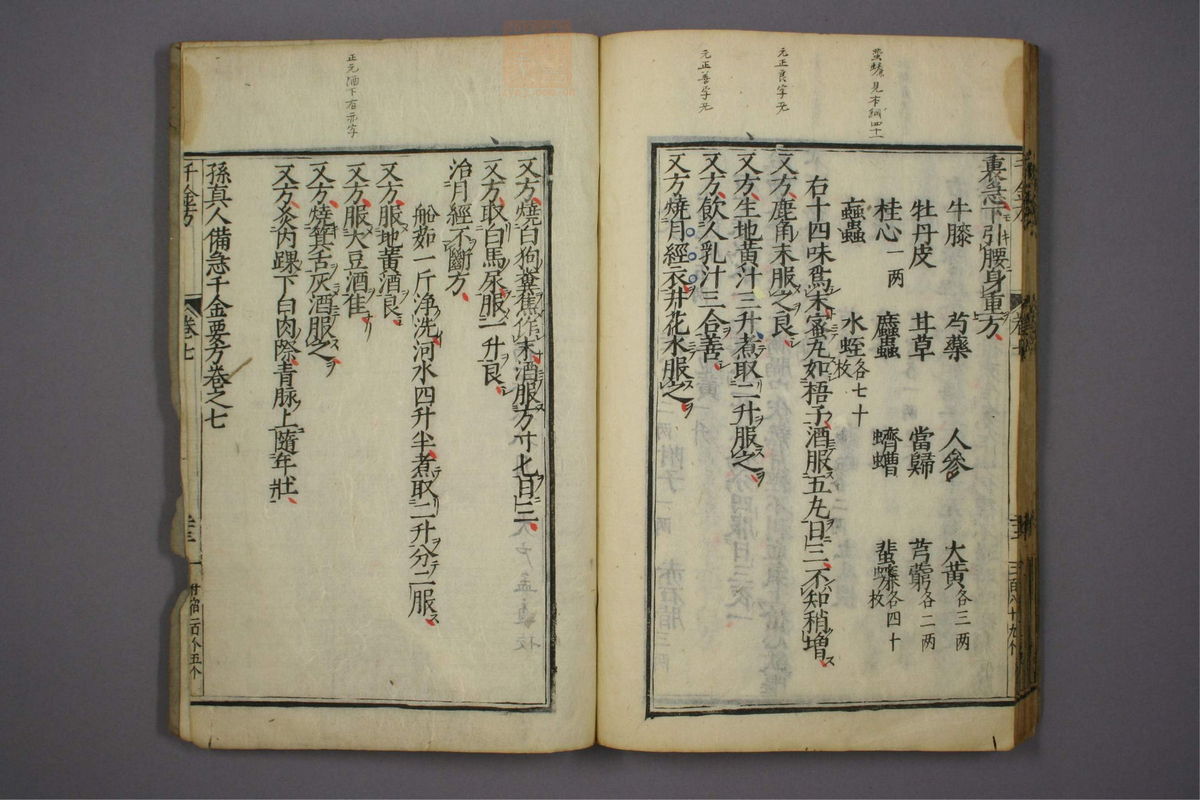 蜚蠊見本綱四十一
元正良字无
元正善字无
裏急下引腰身重方
牛膝 芍藥 人參 大黃各三两
牡丹皮 甘草 當歸 芎藭各二两
桂心一两 䗪蟲 蠐螬 蜚蠊各四十枚
蝱蟲 水蛭各七十枚
右十四味爲末蜜丸如梧子酒服五丸日三不知稍増
又方鹿角末服之良
又方生地黃汁三升煮取二升服之
又方飲人乳汁三合善
又方燒月經衣井花水服之
正元酒下有亦字
又方燒白狗糞焦作末酒服方寸匕日三
又方取白馬尿服一升良
治月經不斷方
船茹一斤浄洗河水四升半煮取二升分二服
又方服地黃酒良
又方服大豆酒隹
又方燒箕舌灰酒服之
又方灸內踝下白肉際青脉上隨年壮
孫真人備急千金要方卷之七
千金方 卷七